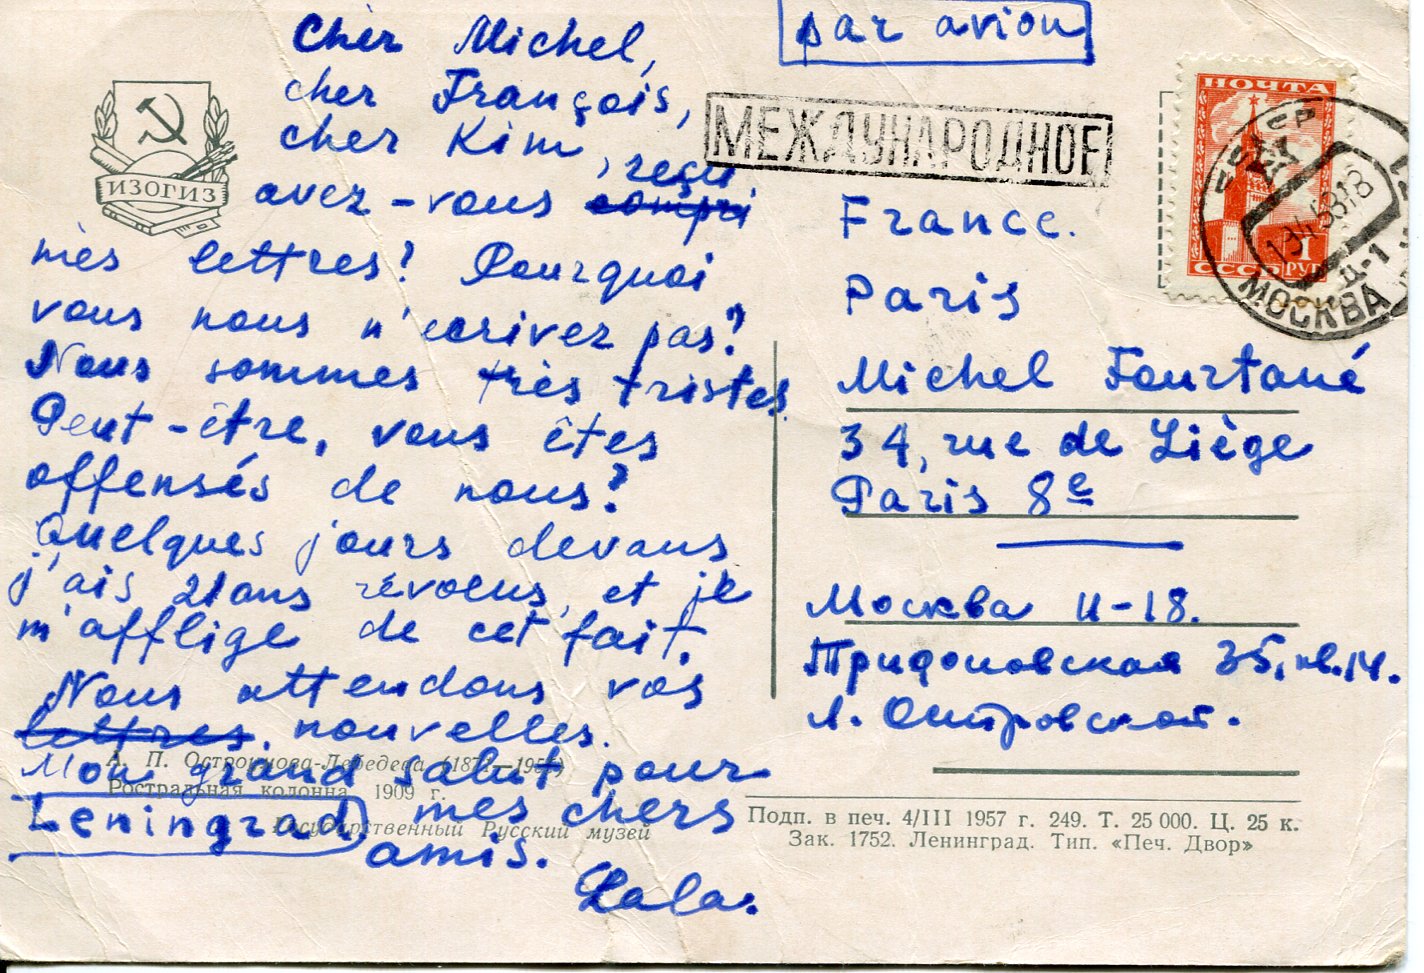 Cher Michel,
cher François,
cher Kim, reçu
avez-vous compri
mes lettres? Pourquoi
vous nous n'ecrivez pas?
Nous sommes très tristes.
Peut-être, vous êtes
offensés de nous?
Quelques jours devans
j'ais 21 ans révolus, et je
m'afflige de cet fait.
Nous attendons vos
lettres. nouvelles.
Mon grand salut pour
Leningrad mes chers
amis.
Lala.
ИЗОГИЗ
А. П. Остроумова-Лебедева (1871—1955)
Ростральная колонна. 1909 г.
Государственный Русский музей
par avion
МЕЖДУНАРОДНОЕ
ПОЧТА
СССР
1 РУБ
МОСКВА
Д-1
France.
Paris
Michel Fourtané
34, rue de Liège
Paris 8e
Москва И-18.
Трифоновская 35, кв. 14.
Л. Островской.
Подп. в печ. 4/III 1957 г. 249. Т. 25 000. Ц. 25 к.
Зак. 1752. Ленинград. Тип. «Печ. Двор»